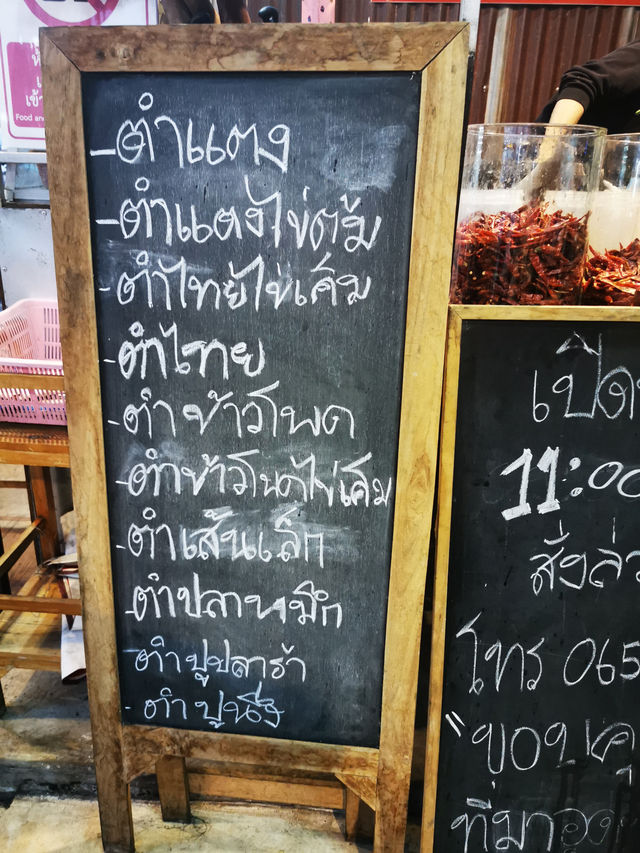 Food an
-ตำแตง
-ตำแตงไข่ต้ม
-ตำไทยไข่เค็ม
-ตำไทย
-ตำข้าวโพด
-ตำข้าวโพดไข่เค็ม
-ตำเส้นเล็ก
-ตำปลาหมึก
-ตำปูปลาร้า
-ตำปูนึ่ง
เปิด
11:00
สั่งล่ว
โทร 065
"ขอบคุ
ที่มาอุด